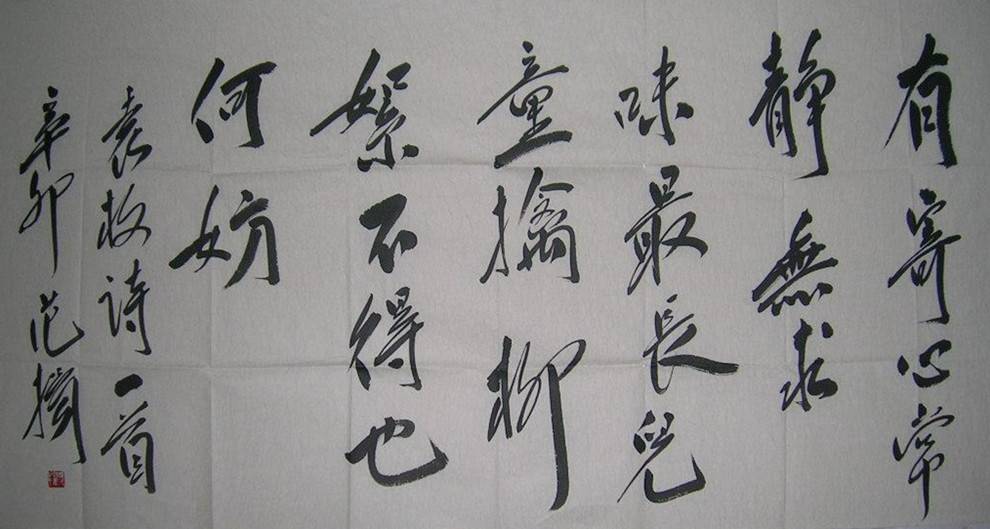 有寄心常
静無求
味最長兒
童擒柳
絮不得也
何妨
袁枚诗一首
辛卯范擴